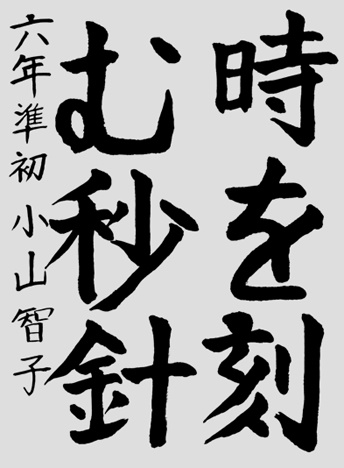 時を刻
む秒針
六年準初 小山智子